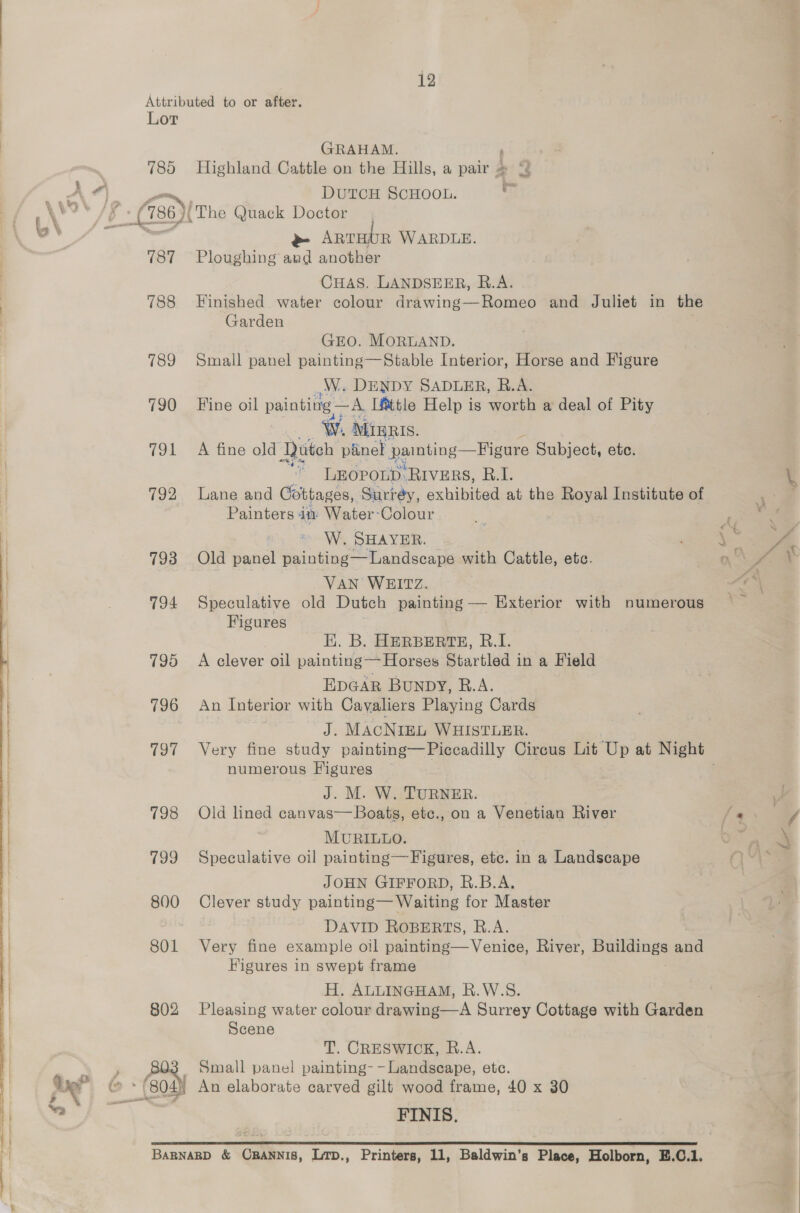 12
Attributed to or after.
Lot
GRAHAM.
785 Highland Cattle on the Hills, a pair
DUTCH SCHOOL.
786 The Quack Doctor
ARTHUR WARDLE.
787 Ploughing and another
CHAS. LANDSEER, R.A.
788 Finished water colour drawing—Romeo and Juliet in the
Garden
GEO. MORLAND.
789 Small panel painting—Stable Interior, Horse and Figure
W. DENDY SADLER, R.A.
790 Fine oil painting—A Little Help is worth a deal of Pity
W. MIERIS.
791 A fine old Dutch panel painting—Figure Subject, etc.
LEOPOLD RIVERS, R.I.
792 Lane and Cottages, Surrey, exhibited at the Royal Institute of
Painters in Water-Colour
W. SHAYER.
793 Old panel painting—Landscape with Cattle, etc.
VAN WEITZ.
794 Speculative old Dutch painting — Exterior with numerous
Figures
E. B. HERBERTE, R.I.
795 A clever oil painting—Horses Startled in a Field
EDGAR BUNDY, R.A.
796 An Interior with Cavaliers Playing Cards
J. MACNIEL WHISTLER.
797 Very fine study painting—Piccadilly Circus Lit Up at Night
numerous Figures
J. M. W. TURNER.
798 Old lined canvas—Boats, etc., on a Venetian River
MURILLO.
799 Speculative oil painting—Figures, etc. in a Landscape
JOHN GIFFORD, R.B.A.
800 Clever study painting—Waiting for Master
DAVID ROBERTS, R.A.
801 Very fine example oil painting—Venice, River, Buildings and
Figures in swept frame
H. ALLINGHAM, R.W.S.
802 Pleasing water colour drawing—A Surrey Cottage with Garden
Scene
T. CRESWICK, R.A.
803 Small panel painting--Landscape, etc.
804 An elaborate carved gilt wood frame, 40 x 30
FINIS.
BARNARD & CRANNIS, LTD., Printers, 11, Baldwin's Place, Holborn, E.C.1.